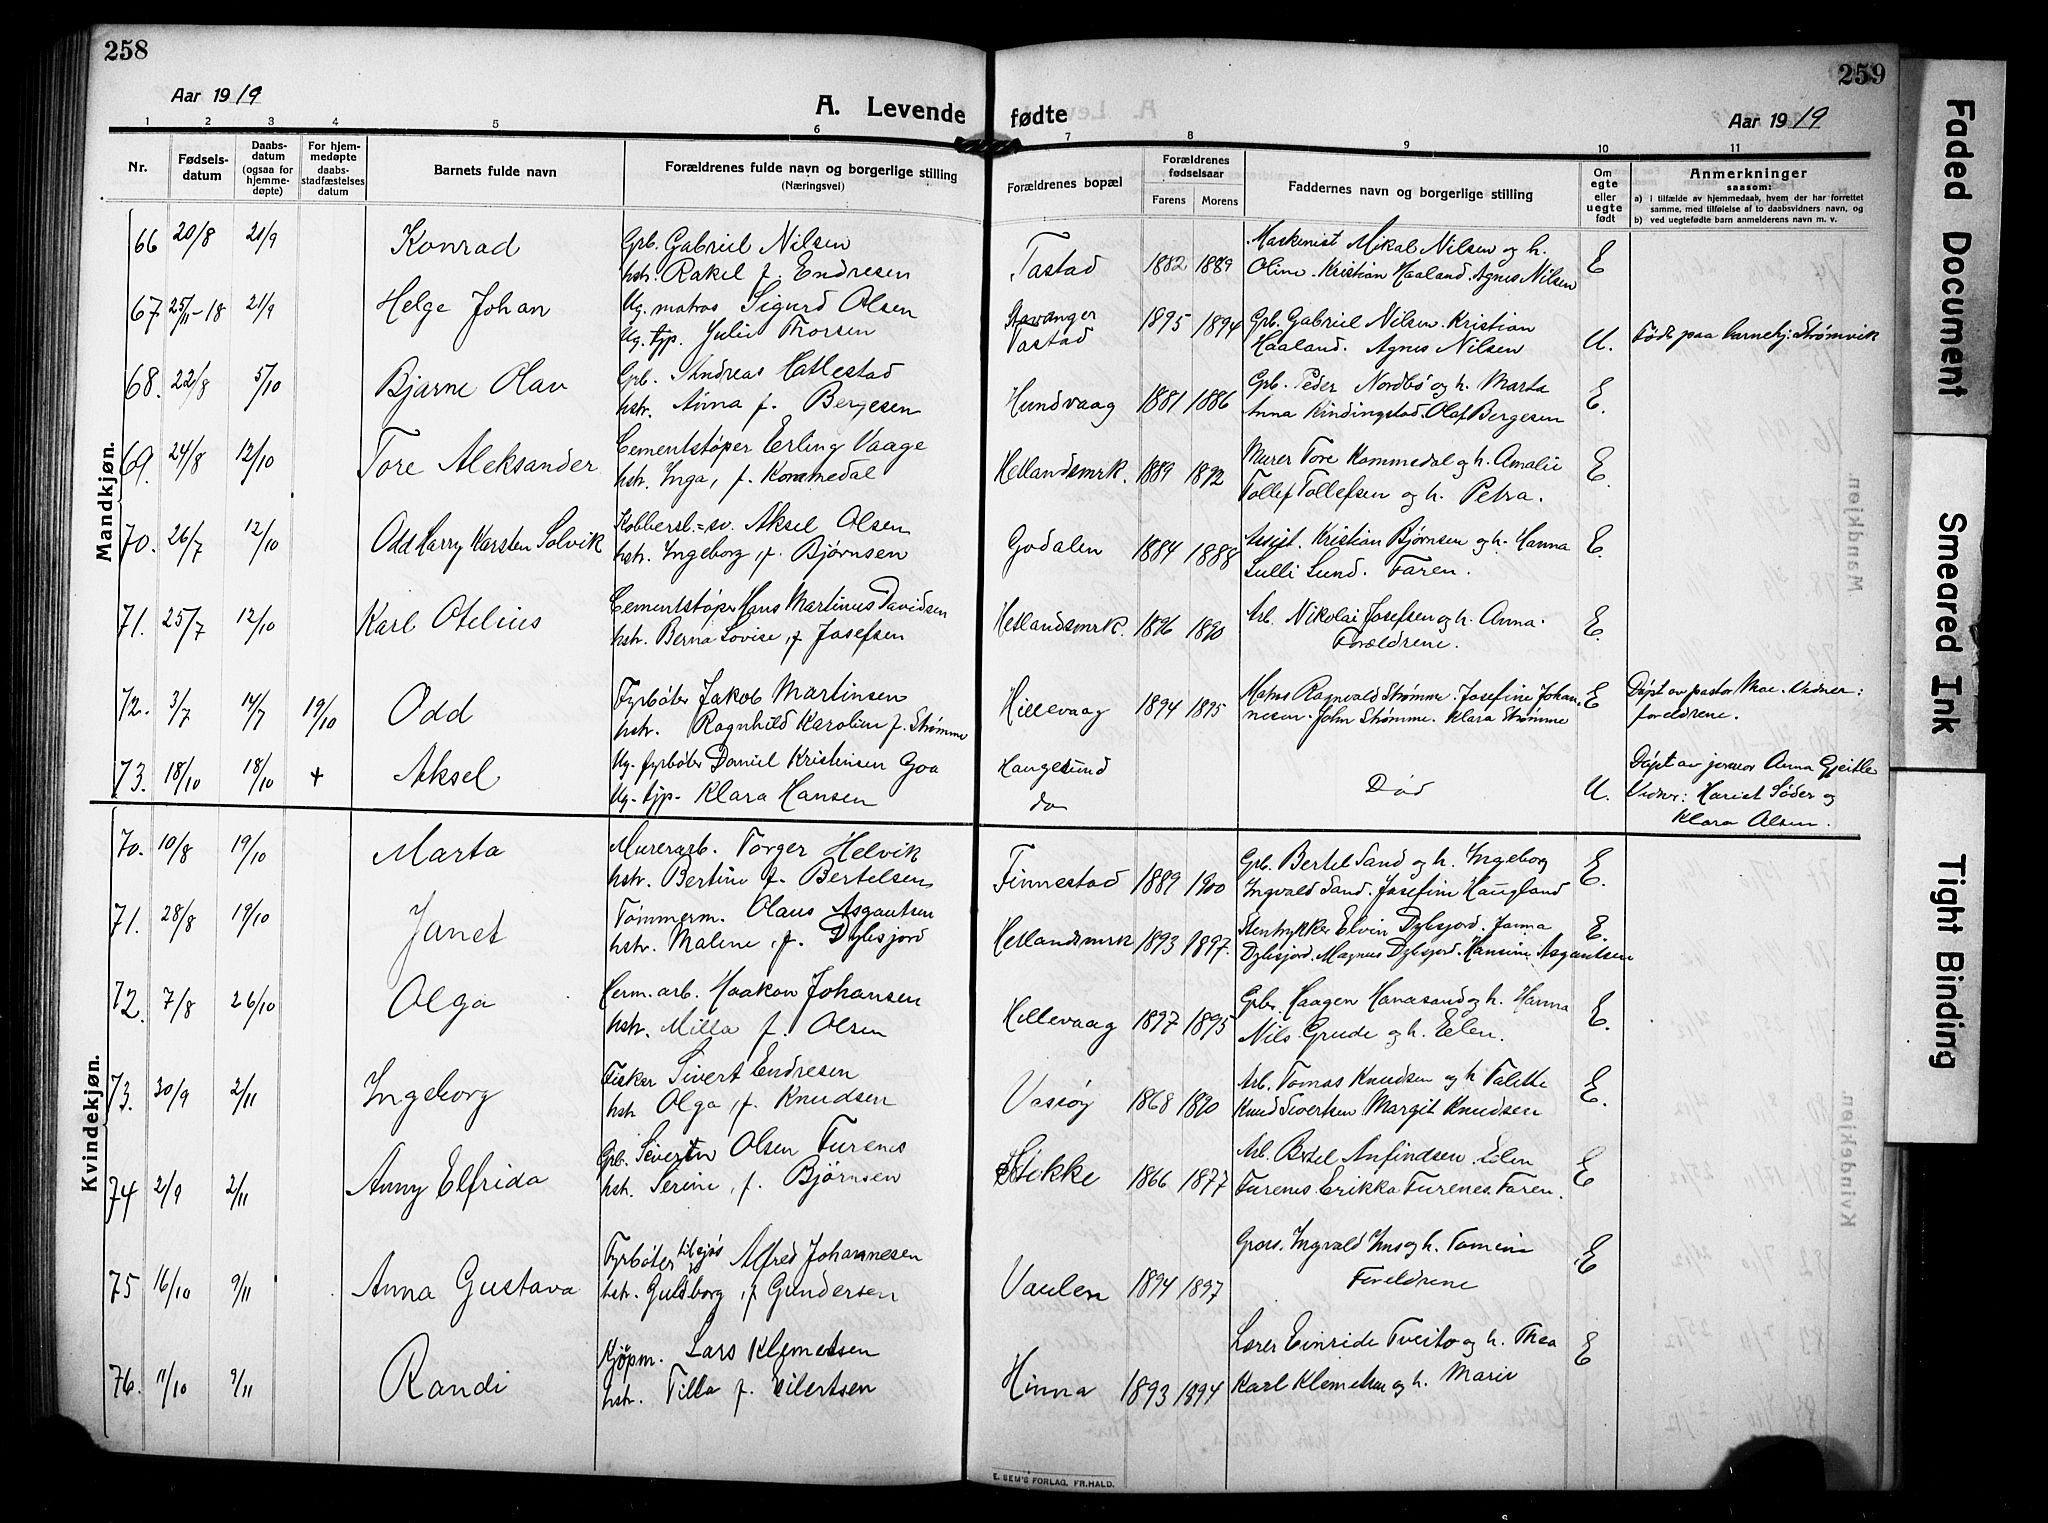 258
259
Aar 1919
A. Levende fødte
Aar 1919
1 2 3 4 5 6 7 8 9 10 11
Nr.
Fødselsdatum
Daabsdatum (ogsaa for hjemmedøpte)
For hjemmedøpte daabsstadfæstelses datum
Barnets fulde navn
Forældrenes fulde navn og borgerlige stilling
(Næringsvei)
Forældrenes bopæl
Forældrenes fødselsaar
Farens Morens
Faddernes navn og borgerlige stilling
Om egte eller uegte født
Anmerkninger
saasom:
a) i tilfælde av hjemmedaab, hvem der har forrettet samme, med tilføielse af to daabsvidners navn, og
b) ved uegtefødte barn anmelderens navn m. v.
Mandkjøn.
66 20/8 21/9 Konrad Gpb. Gabriel Nilsen Tastad 1882 1889 Maskinist Mikal Nilsen og h. E
hstr. Rakel f. Endresen Oline. Kristian Haaland. Agnes Nilsen
67 25/11-18 21/9 Helge Johan Ug. matros Sigurd Olsen Stavanger 1895 1894 Gpb. Gabriel Nilsen. Kristian U. Født paa barnehj. Strømvik
Ug. tjp. Julie Thorsen Tastad Haaland. Agnes Nilsen
68. 22/8 5/10 Bjarne Olav Gpb. Andreas Hatlestad Hundvaag 1881 1886 Gpb. Peder Nordbö og h. Marta E.
hstr. Anna f. Bergesen Anna Kindingstad. Olaf Bergesen
69. 24/8 12/10 Tore Aleksander Cementstøper Erling Vaage Hetlandsmrk. 1889 1892 Murer Tore Kommedal og h. Amalie E.
hstr. Inga, f. Kommedal Tollef Tollefsen og h. Petra.
70. 26/7 12/10 Odd Harry Karsten Solvik Kobbersl.=sv. Aksel Olsen Godalen 1884 1888 Assist. Kristian Bjørnsen og h. Hanna E.
hstr. Ingeborg, f. Bjørnsen Lulli Lund. Faren.
71. 25/7 12/10 Karl Otelius Cementstøper Hans Martinus Davidsen Hetlandsmrk. 1896 1890 Arb. Nikolai Josefsen og h. Anna. E.
hstr. Berna Lovise, f. Josefsen Forældrene.
72. 3/7 14/7 19/10 Odd Fyrbøter Jakob Martinsen Hillevaag 1894 1895 Matros Ragnvald Strømme. Josefine Johan- E Døpt av pastor Moe. Vidner:
hstr. Ragnhild Karoline f. Strømme nesen. John Strømme. Klara Strømme foreldrene.
73. 18/10 18/10 + Aksel Ug. fyrbøter Daniel Kristensen Goa Haugesund Død U. Døpt av jormor Anna Gjeitle
Ug. tjp. Klara Hansen do Vidner: Hariet Söder og
Klara Olsen.
Kvindekjøn.
70. 10/8 19/10 Marta Murerarb. Torger Helvik Finnestad 1889 1900 Gpb. Bertel Sand og h. Ingeborg E.
hstr. Bertine f. Bertelsen Ingvald Sand. Josefine Haugland
71. 28/8 19/10 Janet Tømmerm. Olaus Asgautsen Hetlandsmrk 1893 1897. Stentrykker Elvin Dybsjord. Janna E.
hstr. Malene, f. Dybsjord Dybsjord. Magnus Dybsjord. Hansine Asgautsen
72. 7/8 26/10 Olga Herm. arb. Haakon Johansen Hillevaag 1897 1895 Gpbr. Haagen Hanasand og h. Hanna E.
hstr. Milla f. Olsen Nils Grude og h. Elen.
73. 30/9 2/11 Ingeborg Fisker Sivert Endresen Vasöy 1868 1890 Arb. Tomas Knudsen og h Talette E.
hstr. Olga, f. Knudsen Knud Sivertsen Margit Knudsen
74 2/9 2/11 Anny Elfrida Gpb. Sivertn Olsen Furenes Stokke 1866 1877 Arb. Bertel Anfindsen. Elen E
hstr. Serine, f. Bjørnsen Furenes. Erikka Furenes. Faren.
75 16/10 9/11 Anna Gustava Fyrbøter tilsjøs Alfred Johannesen Vaulen 1894 1897 Gross. Ingvald Ims og h. Tomine E
hstr. Guldborg, f Gundersen Foreldrene
76. 11/10 9/11 Randi Kjøpm. Lars Klemetsen Hinna 1893 1894 Lærer Einride Tveito og h. Thea E
hstr. Tilla f. Eilertsen Karl Klemetsen og h. Marie
E. SEM'S FORLAG, FR.HALD.
Faded Document
Smeared Ink
Tight Binding